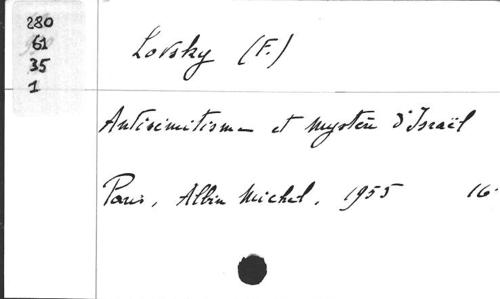 280
61
35
1
Lovsky (F.)
Antisémitisme et mystère d'Israël
Paris, Albin Michel, 1955 16°